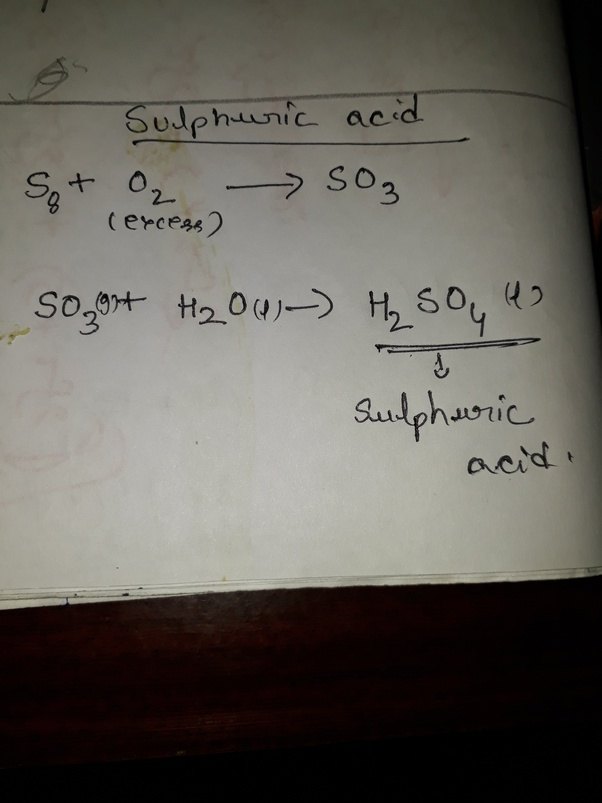 Sulphuric acid
S₈ + O₂ → SO₃
(excess)
SO₃(g) + H₂O(l) → H₂SO₄(l)
↓
Sulphuric
acid.